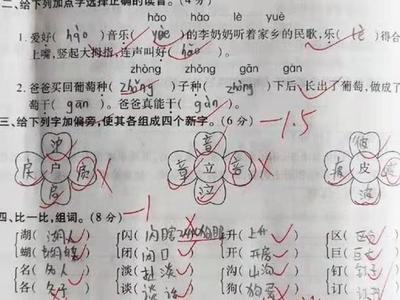 二、给下列加点字选择正确的读音。(4分)
hǎo hào lè yuè
1. 爱好( hào )音乐( yuè )的李奶奶听着家乡的民歌,乐( lè )得合
上嘴,竖起大拇指,连声叫好( hǎo )。
zhòng zhǒng gān gàn
2. 爸爸买回葡萄种( zhǒng )子种( zhòng )下后,长出了葡萄,做成了
萄干( gān )。爸爸真能干( gàn )。
三、给下列字加偏旁,使其各组成四个新字。(6分) -1.5
沪 音 彼
房 户 启 章 立 疲 皮
泣
四、比一比,组词。(8分) -1
湖( 湖人 ) 闪( ) 升( 上升 ) 区(
蝴( 蝴蝶 ) 闭( 闭口 ) 开( 开房 ) 巨(
名( 名人 ) 淡( ) 沟( 山沟 ) 钉( 钉子
各( ) 谈( ) 狗( ) 订(